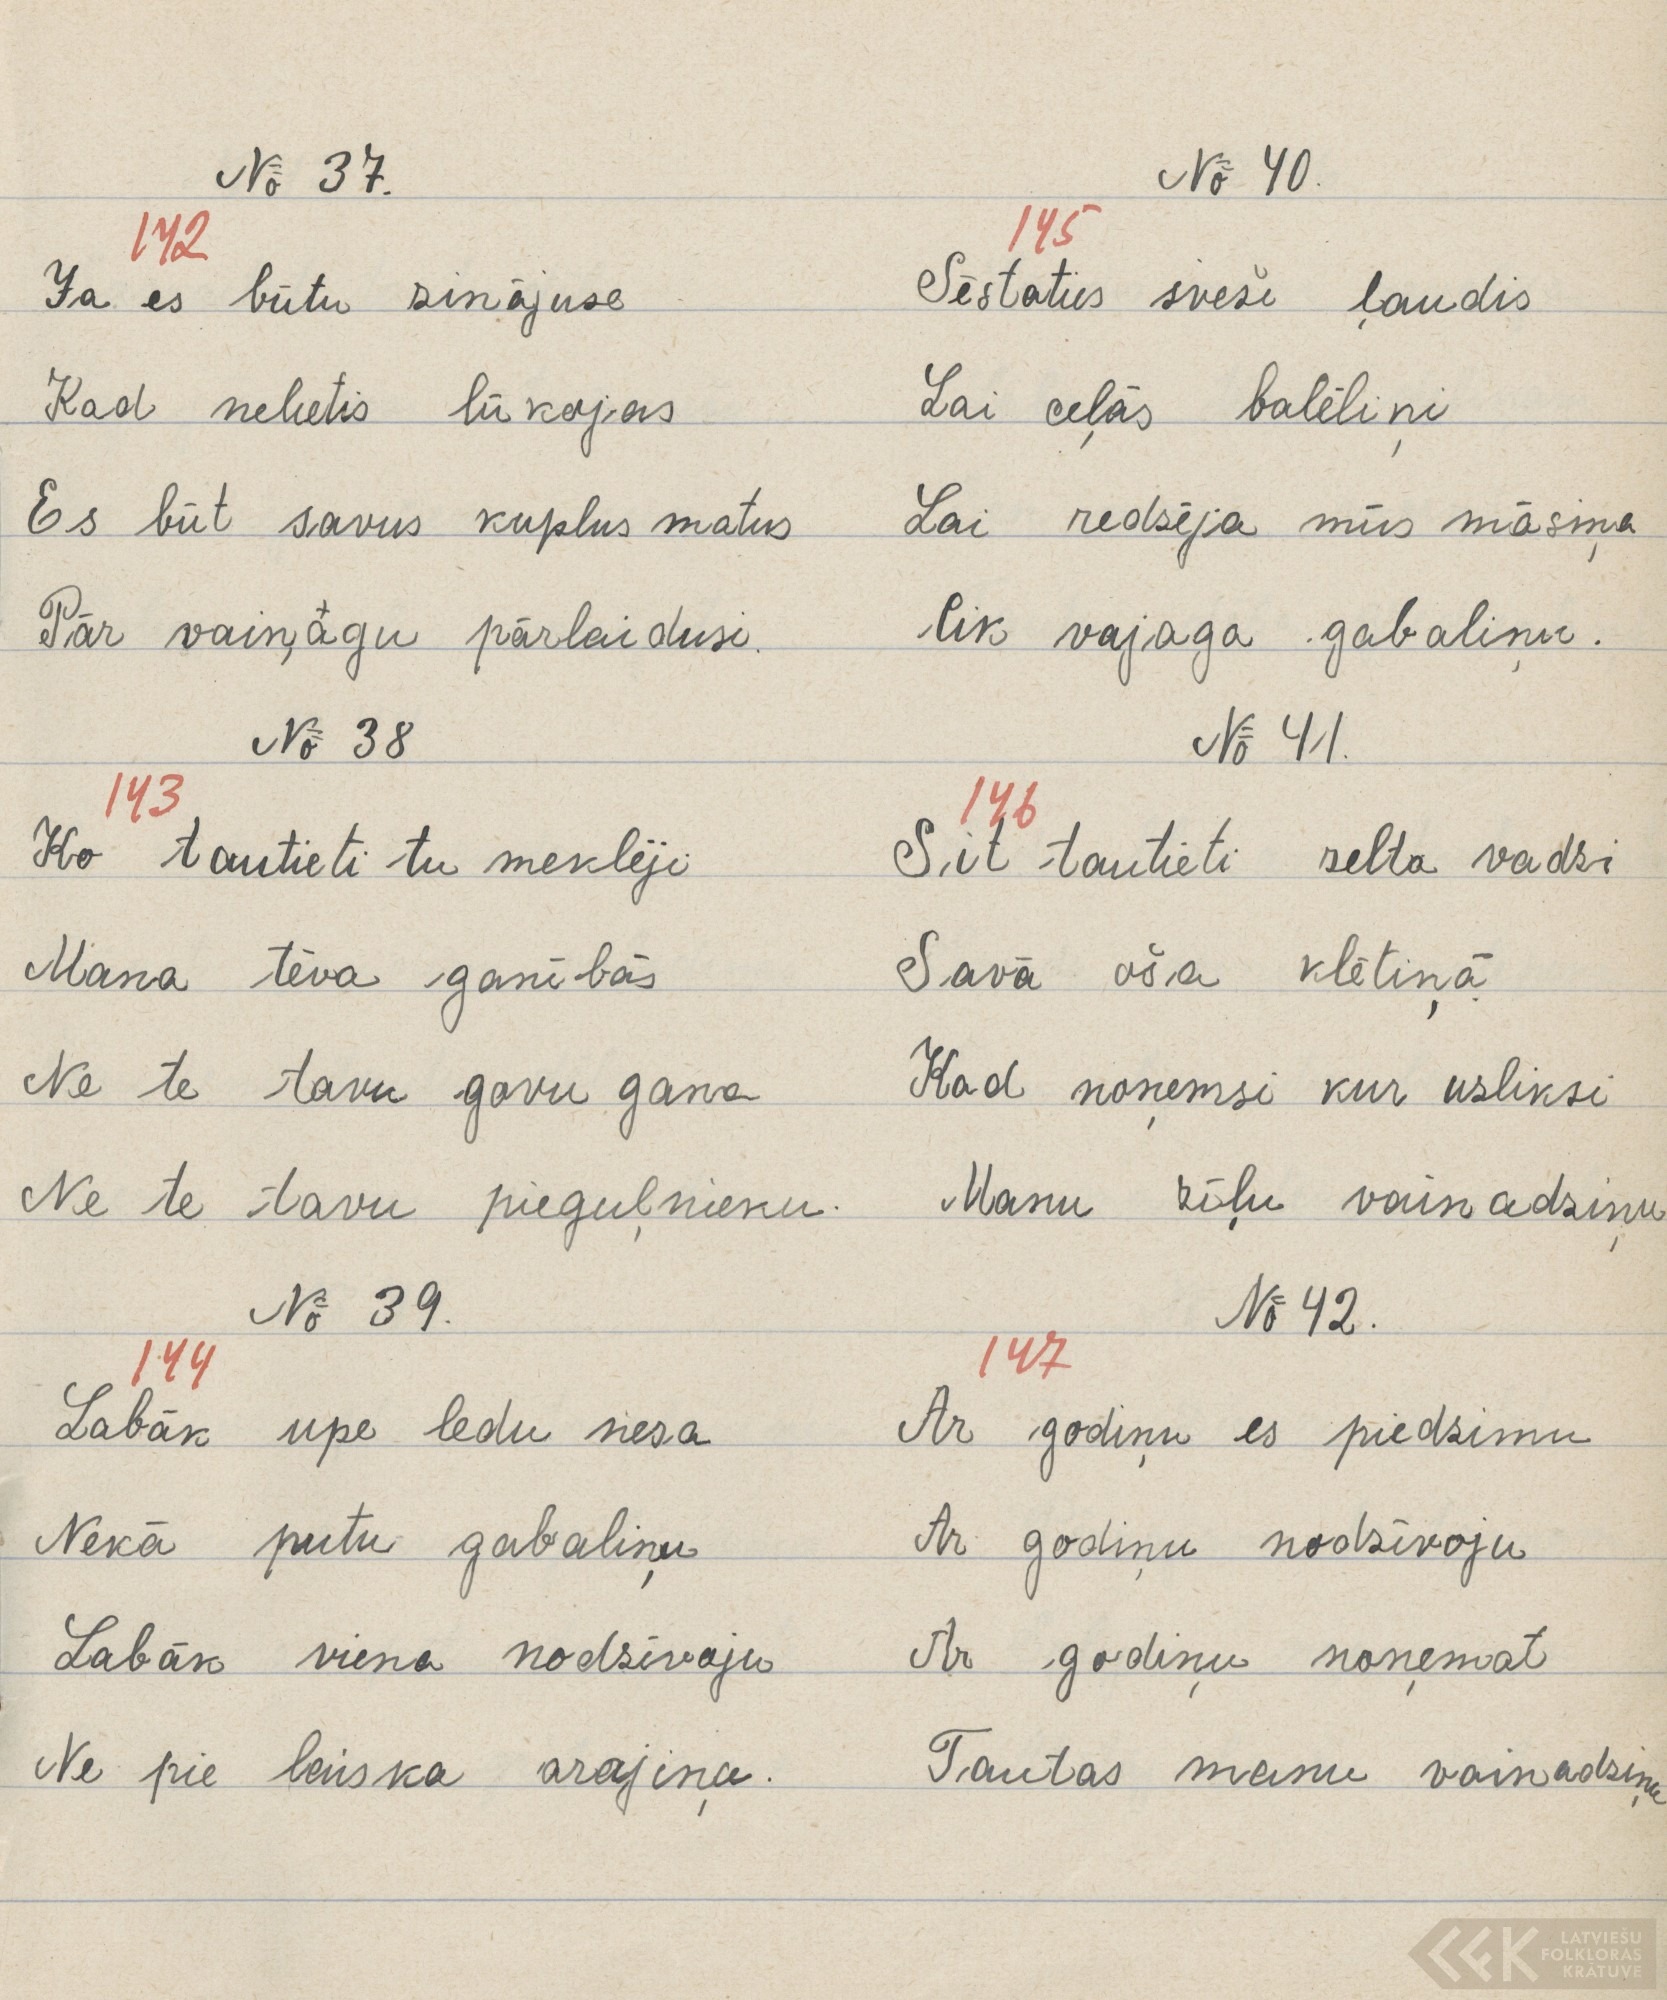 № 37.
142
Ja es būtu zinājuse
Kad nelietis lūkojas
Es būt savus kuplus matus
Pār vaiņāgu pārlaidusi.
№ 38
143
Ko tautieti tu meklēji
Mana tēva ganībās
Ne te tavu govu gana
Ne te tavu pieguļnieku.
№ 39.
144
Labāk upe ledu nesa
Nekā putu gabaliņu
Labāk viena nodzīvoju
Ne pie laiska arajiņa.
№ 40.
145
Sēstaties sveši ļaudis
Lai ceļās balēliņi
Lai redzēja mūs māsiņa
Cik vajaga gabaliņu.
№ 41.
146
Sit tautieti zelta vadzi
Savā oša klētiņā
Kad noņemsi kur uzliksi
Manu zīļu vainadziņu
№ 42.
147
Ar godiņu es piedzimu
Ar godiņu nodzīvoju
Ar godiņu noņemat
Tautas manu vainadziņu
LATVIEŠU
FOLKLORAS
KRĀTUVE